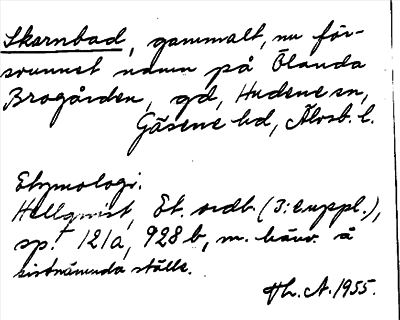 Skarnbad, gammalt, nu för-
svunnet namn på Ölanda
Brogården, gd, Hudene sn,
Gäsene hd, Älvsb. l.
Etymologi:
Hellquist, Et. ordb. (3:e uppl.),
sp. 121a, 928b, m. hänv. å
sistnämnda ställe.
Hh. A. 1955.